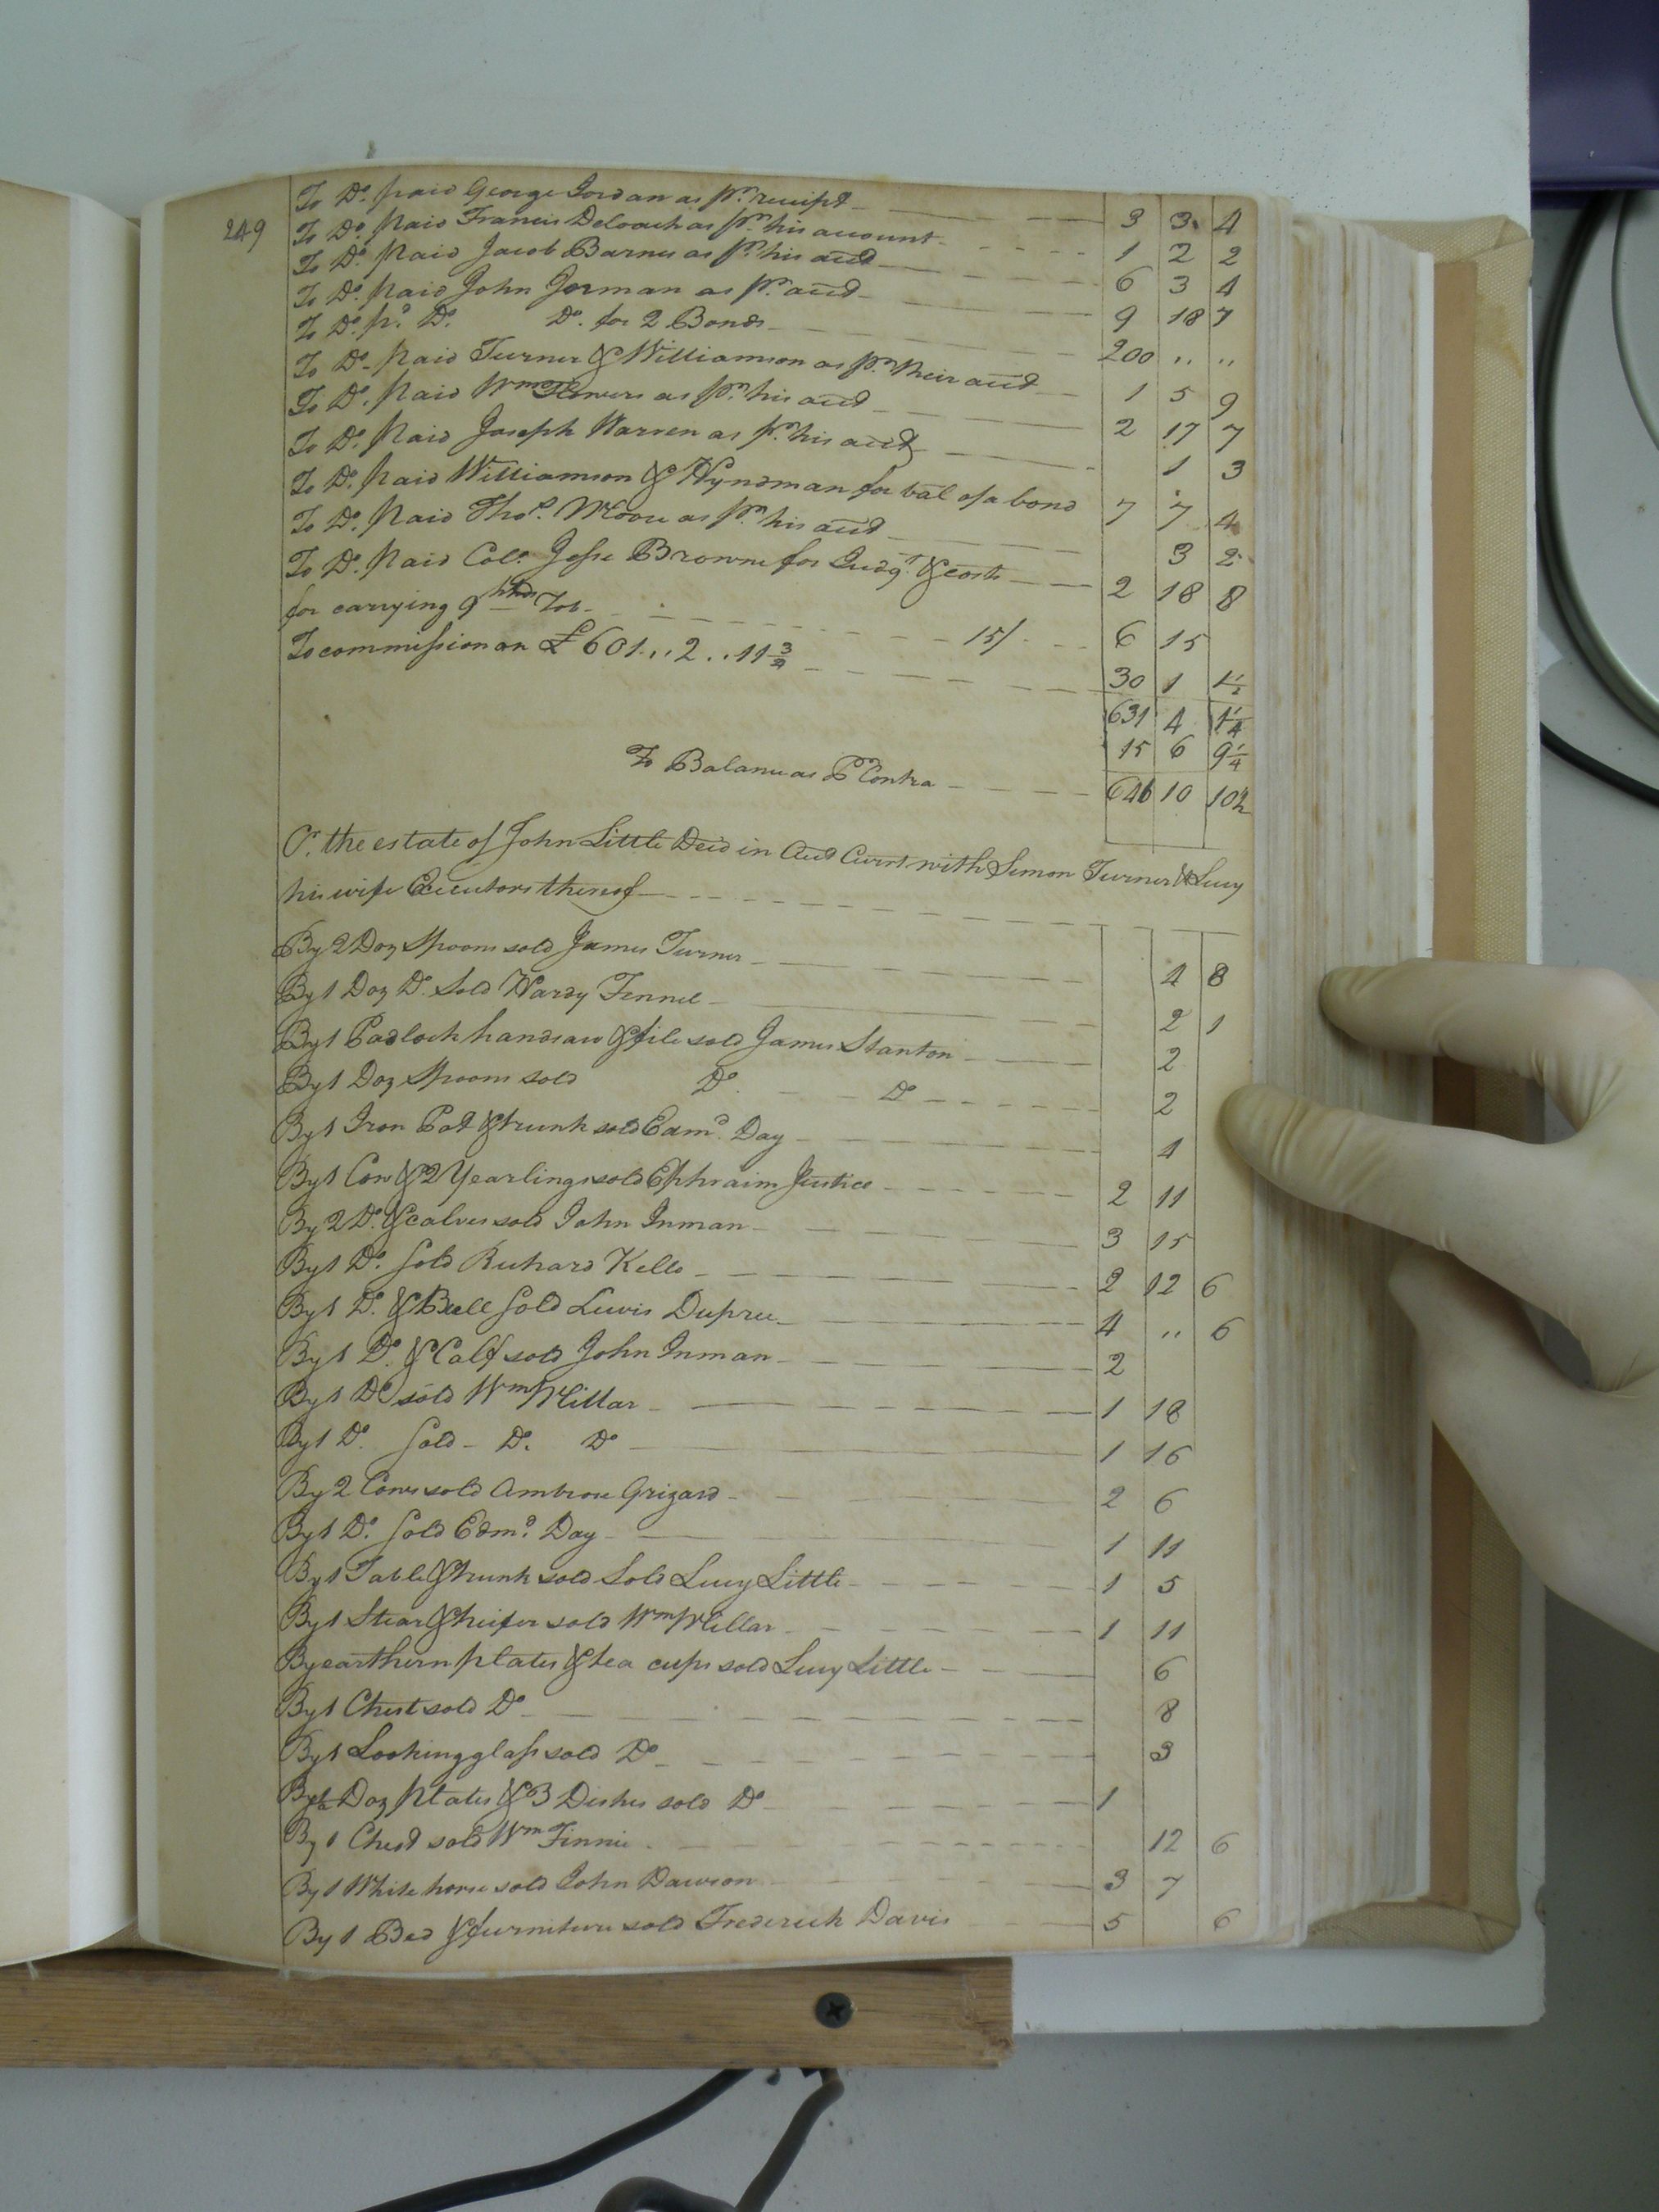 249
To Do. paid George Jordan as pr. receipt 3 3 4
To Do. paid Francis Deloach as pr. his account 1 2 2
To Do. paid Jacob Barnes as pr. his acct 6 3 4
To Do. paid John Jorman as pr. acct 9 18 7
To Do. pd. Do. Do. for 2 Bonds 200 .. ..
To Do. paid Turner & Williamson as pr. their acct 1 5 9
To Do. paid Wm Flowers as pr. his acct 2 17 7
To Do. paid Joseph Warren as pr. his acct 1 3
To Do. paid Williamson & Hyndman for bal of a bond 7 7 4
To Do. paid Thos. Moore as pr. his acct 3 2
To Do. paid Colo. Jesse Browne for Judgt. & costs 2 18 8
for carrying 9 hhds Tob. 15/ 6 15
To commission on £601..2..11 3/4 30 1 1 1/2
631 4 1 1/4
15 6 9 1/4
To Balance as Pr Contra 646 10 10 1/2
Cr. the estate of John Little Decd in Acct Currt with Simon Turner & Lucy
his wife Executors thereof
By 2 Doz Spoons sold James Turner 4 8
By 1 Doz Do. Sold Hardy Fennel 2 1
By 1 Padlock handsaw & file sold James Stanton 2
By 1 Doz Spoons sold Do. Do 2
By 1 Iron Pot & trunk sold Edmd. Day 4
By 1 Cow & 2 Yearlings sold Ephraim Justice 2 11
By 2 Do. & calves sold John Inman 3 15
By 1 Do. Sold Richard Kello 2 12 6
By 1 Do. & Bull Sold Lewis Dupree 4 .. 6
By 1 Do. & Calf sold John Inman 2
By 1 Do sold Wm Millar 1 18
By 1 Do. Sold Do. Do 1 16
By 2 Cows sold Ambrose Grizard 2 6
By 1 Do. Sold Edmd. Day 1 11
By 1 Table & trunk sold Sold Lucy Little 1 5
By 1 Stear & heifer sold Wm Millar 1 11
By earthern plates & tea cups sold Lucy Little 6
By 1 Chest sold Do 8
By 1 Looking glass sold Do 3
By 1/2 Doz plates & 3 Dishes sold Do 1
By 1 Chest sold Wm Finnie 12 6
By 1 White horse sold John Dawson 3 7
By 1 Bed & furniture sold Frederick Davis 5 6